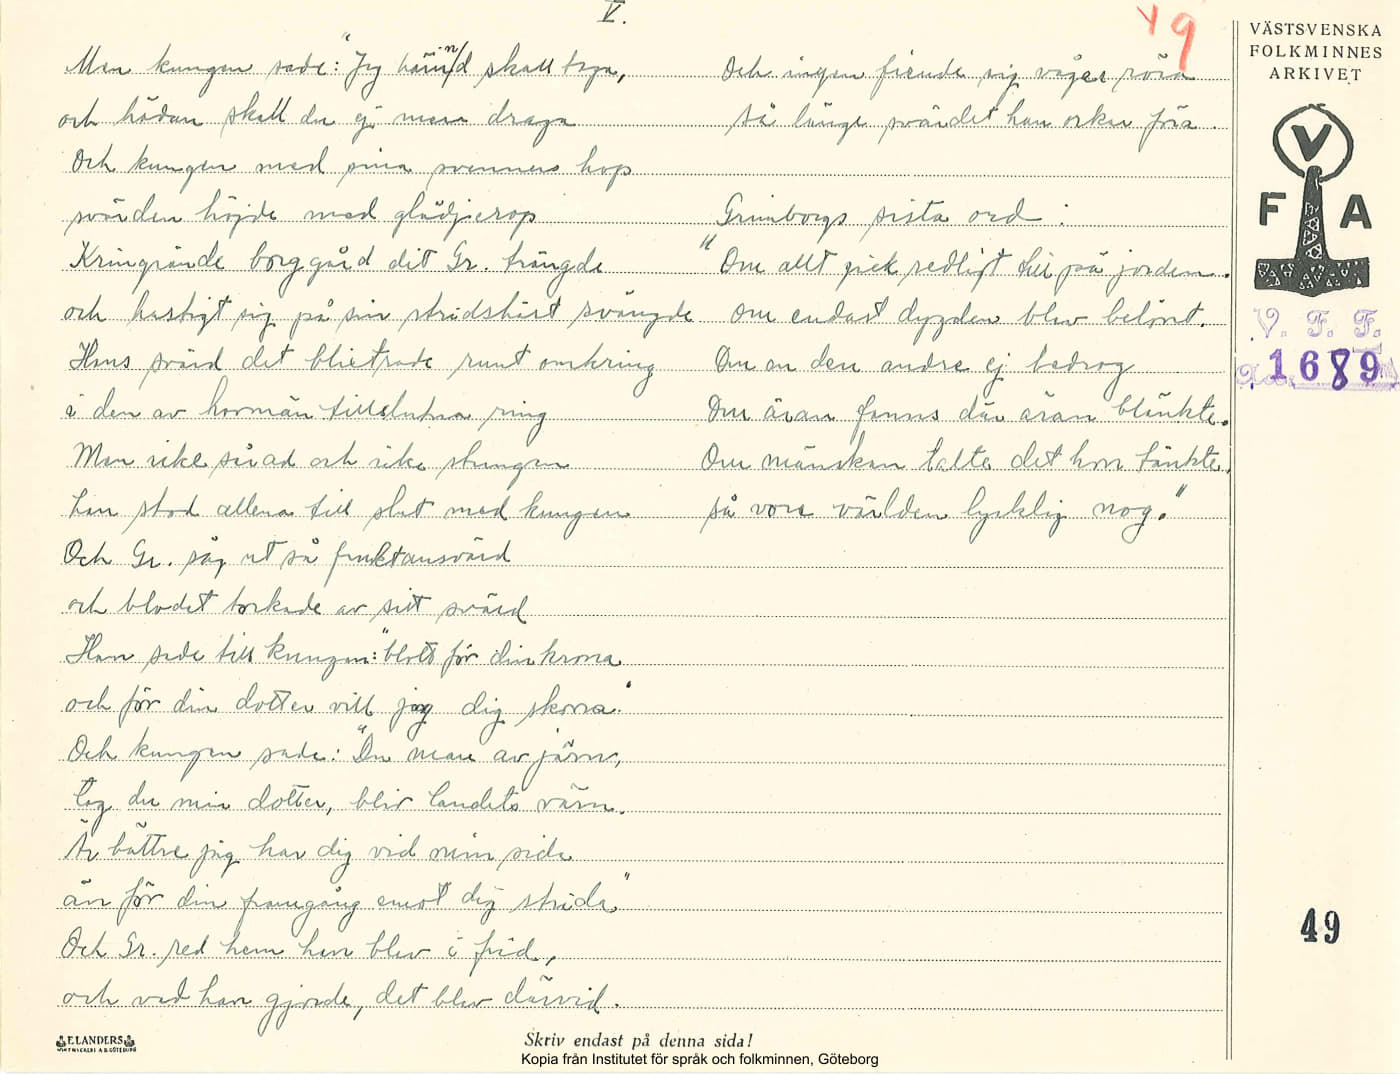 V.
49
Men kungen sade: "Jag hämnd skall taga,
och hädan skall du ej mera draga
Och kungen med sina svenners hop
svärden höjde med glädjerop
Kringrände borggård dit Gr. trängde
och hastigt sig på sin stridshäst svängde
Hans svärd det blixtrade runt omkring
i den av harmän tillslutna ring
Men icke sårad och icke stungen
han stod allena till slut med kungen
Och Gr. såg ut så fruktansvärd
och blodet torkade av sitt svärd
Han sade till kungen: "blott för din krona
och för din dotter vill jag dig skona"
Och kungen sade: "Du man av järn,
tag du min dotter, bliv landets värn.
Är bättre jag har dig vid min sida
än för din framgång emot dig strida"
Och Gr. red hem han blev i frid,
och vad han gjorde, det blev därvid.
Och ingen fiende sig vågar röra
så länge svärdet han orkar föra.
Grimborgs sista ord:
"Om allt gick redligt till på jorden.
Om endast dygden blev belönt.
Om en den andre ej bedrog
Om äran fanns där äran blänkte.
Om mänskan talte det hon tänkte.
så vore världen lycklig nog."
VÄSTSVENSKA
FOLKMINNES
ARKIVET
V
F A
V. F. F.
1689
49
F. LANDERS
Skriv endast på denna sida!
Kopia från Institutet för språk och folkminnen, Göteborg